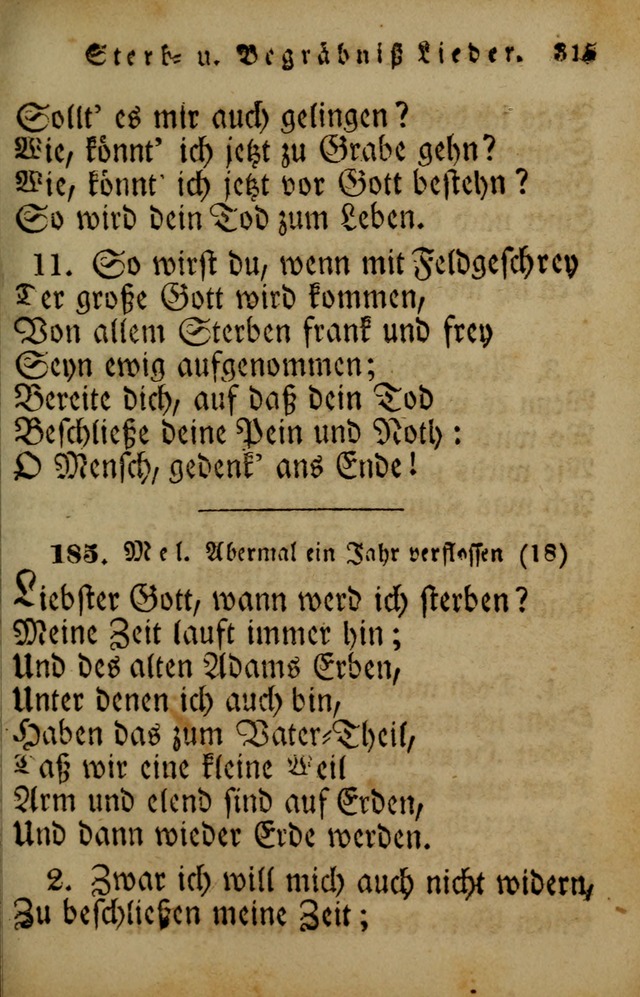 Sterb- u. Begräbniß Lieder. 315
Sollt' es mir auch gelingen?
Wie, könnt' ich jetzt zu Grabe gehn?
Wie, könnt' ich jetzt vor Gott bestehn?
So wird dein Tod zum Leben.
11. So wirst du, wenn mit Feldgeschrey
Der große Gott wird kommen,
Von allem Sterben frank und frey
Seyn ewig aufgenommen;
Bereite dich, auf daß dein Tod
Beschließe deine Pein und Noth:
O Mensch, gedenk' ans Ende!
185. Mel. Abermal ein Jahr verflossen (18)
Liebster Gott, wann werd ich sterben?
Meine Zeit lauft immer hin;
Und des alten Adams Erben,
Unter denen ich auch bin,
Haben das zum Vater-Theil,
Daß wir eine kleine Weil
Arm und elend sind auf Erden,
Und dann wieder Erde werden.
2. Zwar ich will mich auch nicht widern,
Zu beschließen meine Zeit;